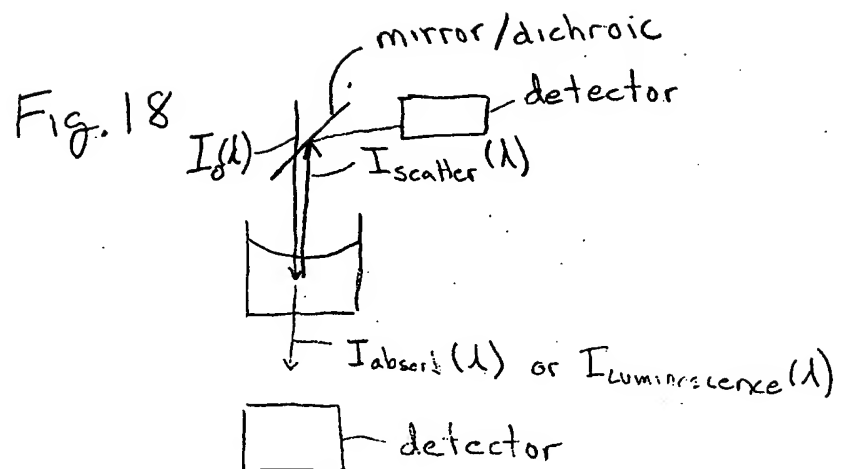 mirror/dichroic
Fig. 18
detector
I₀(λ)
I scatter (λ)
I absorb (λ) or I Luminescence (λ)
detector